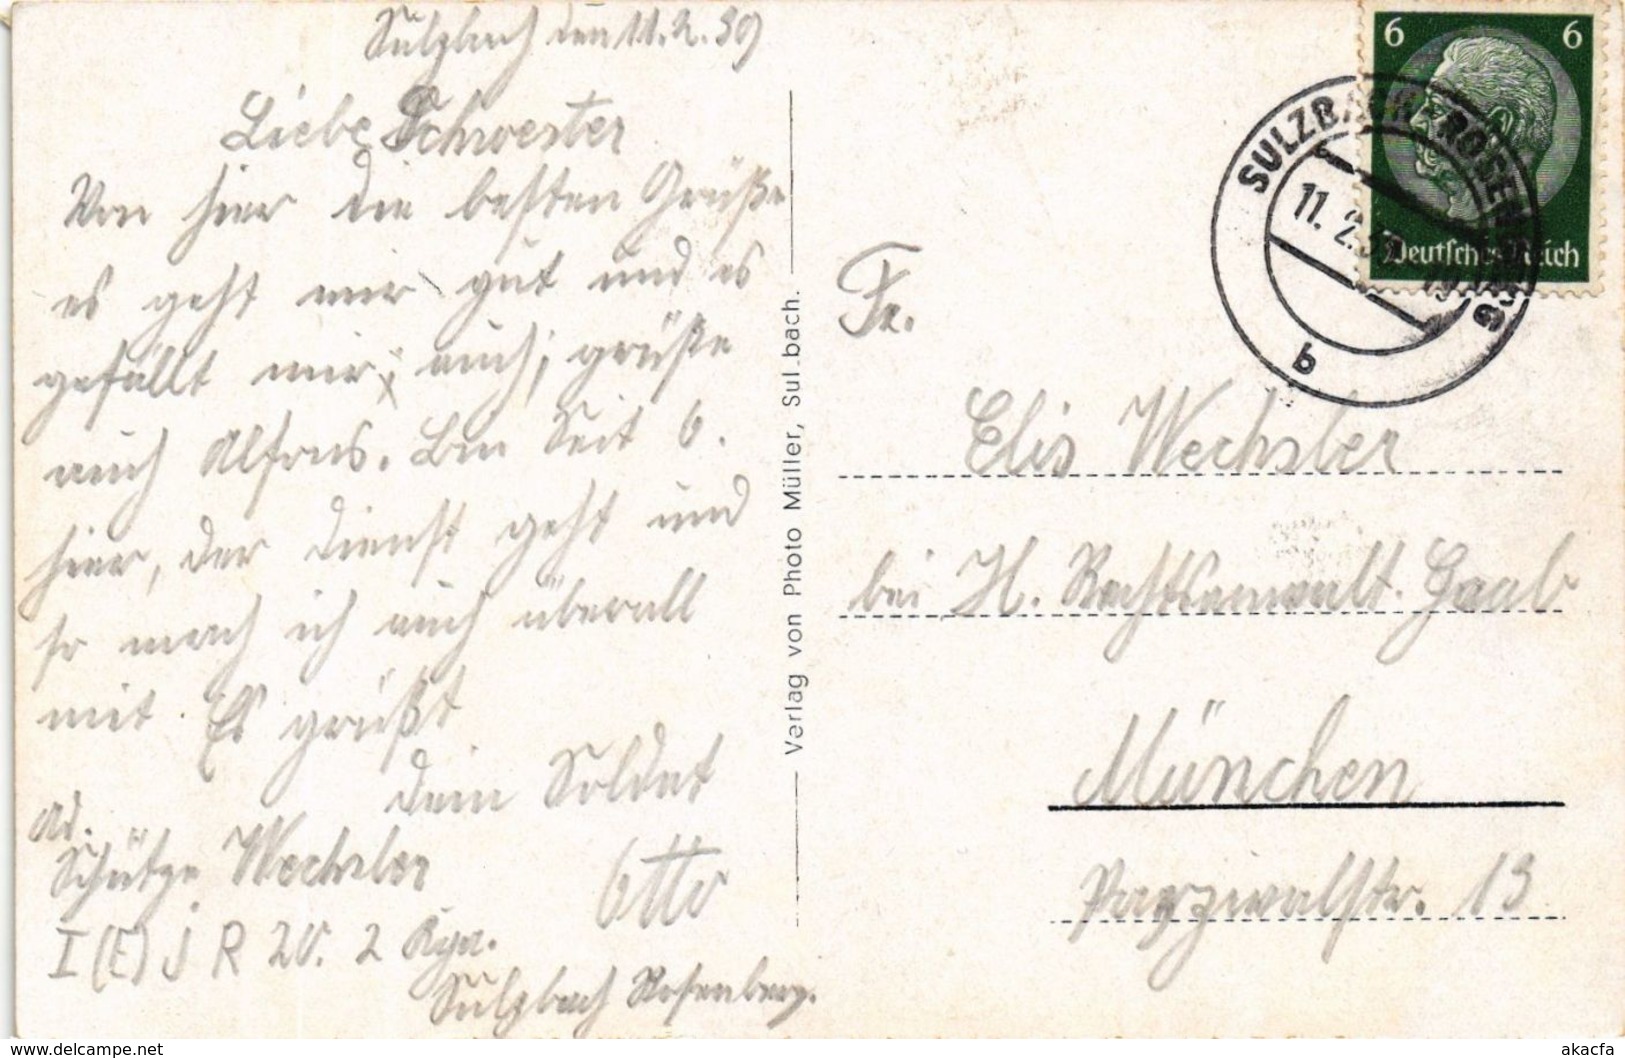 Sulzbach den 11.2.39
Liebe Schwester
Von hier die besten Grüße
es geht mir gut und es
gefällt mir auch, grüße
auch Alfons. Bin seit 6.
hier, der Dienst geht und
so mach ich auch überall
mit. Es grüßt
Dein Soldat
Otto
Ad.
Schütze Wechsler
I (E) J R 20. 2 Kp.
Sulzbach Rosenberg.
Verlag von Photo Müller, Sul bach.
6 6
Deutsches Reich
SULZBACH-ROSENBERG
11. 2. 39
b
Fr.
Elis Wechsler
bei H. Rechtsanwalt. Gaab
München
Parzivalstr. 13
akpool.de
akacfa